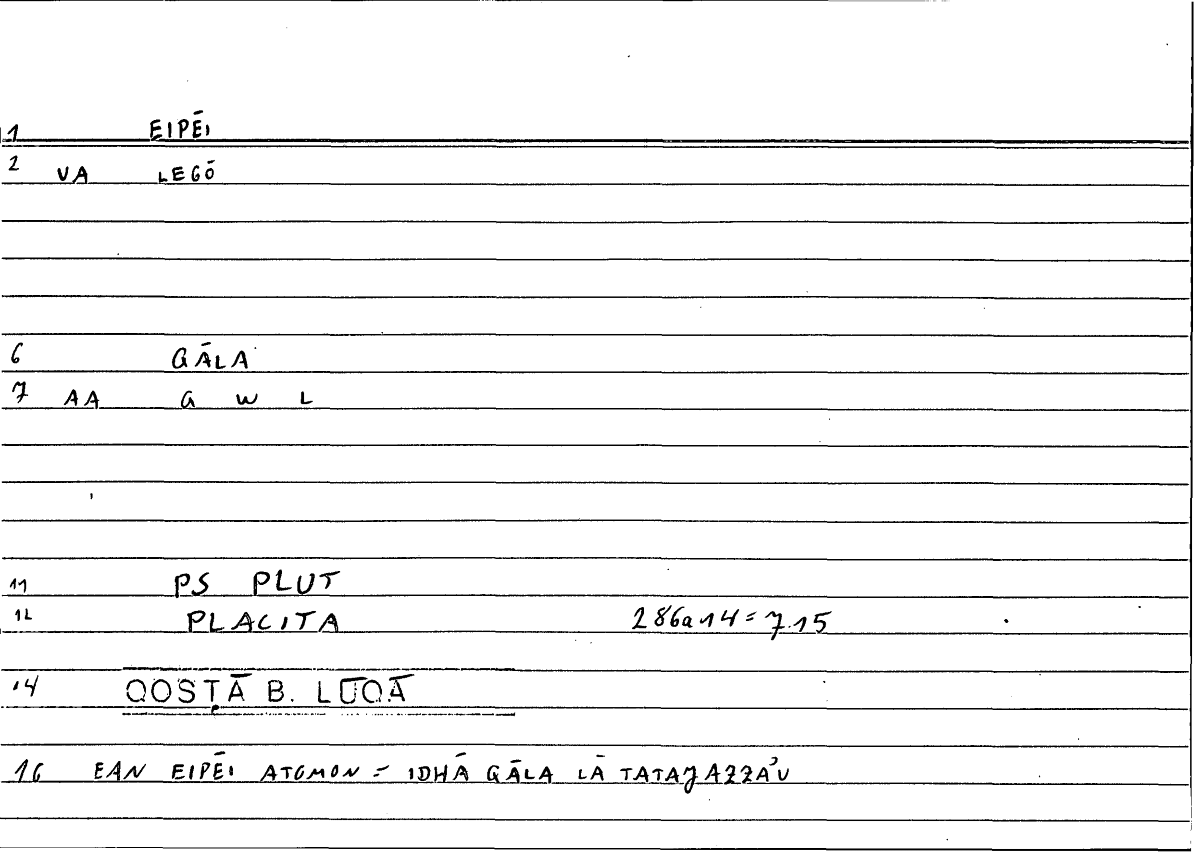 1 EIPĒI
2 VA LEGŌ
6 QĀLA
7 AA Q W L
11 PS PLUT
12 PLACITA 286a14=7.15
14 QOSṬĀ B. LŪQĀ
16 EAN EIPĒI ATOMON = IDHĀ QĀLA LĀ TATAJAZZA'U